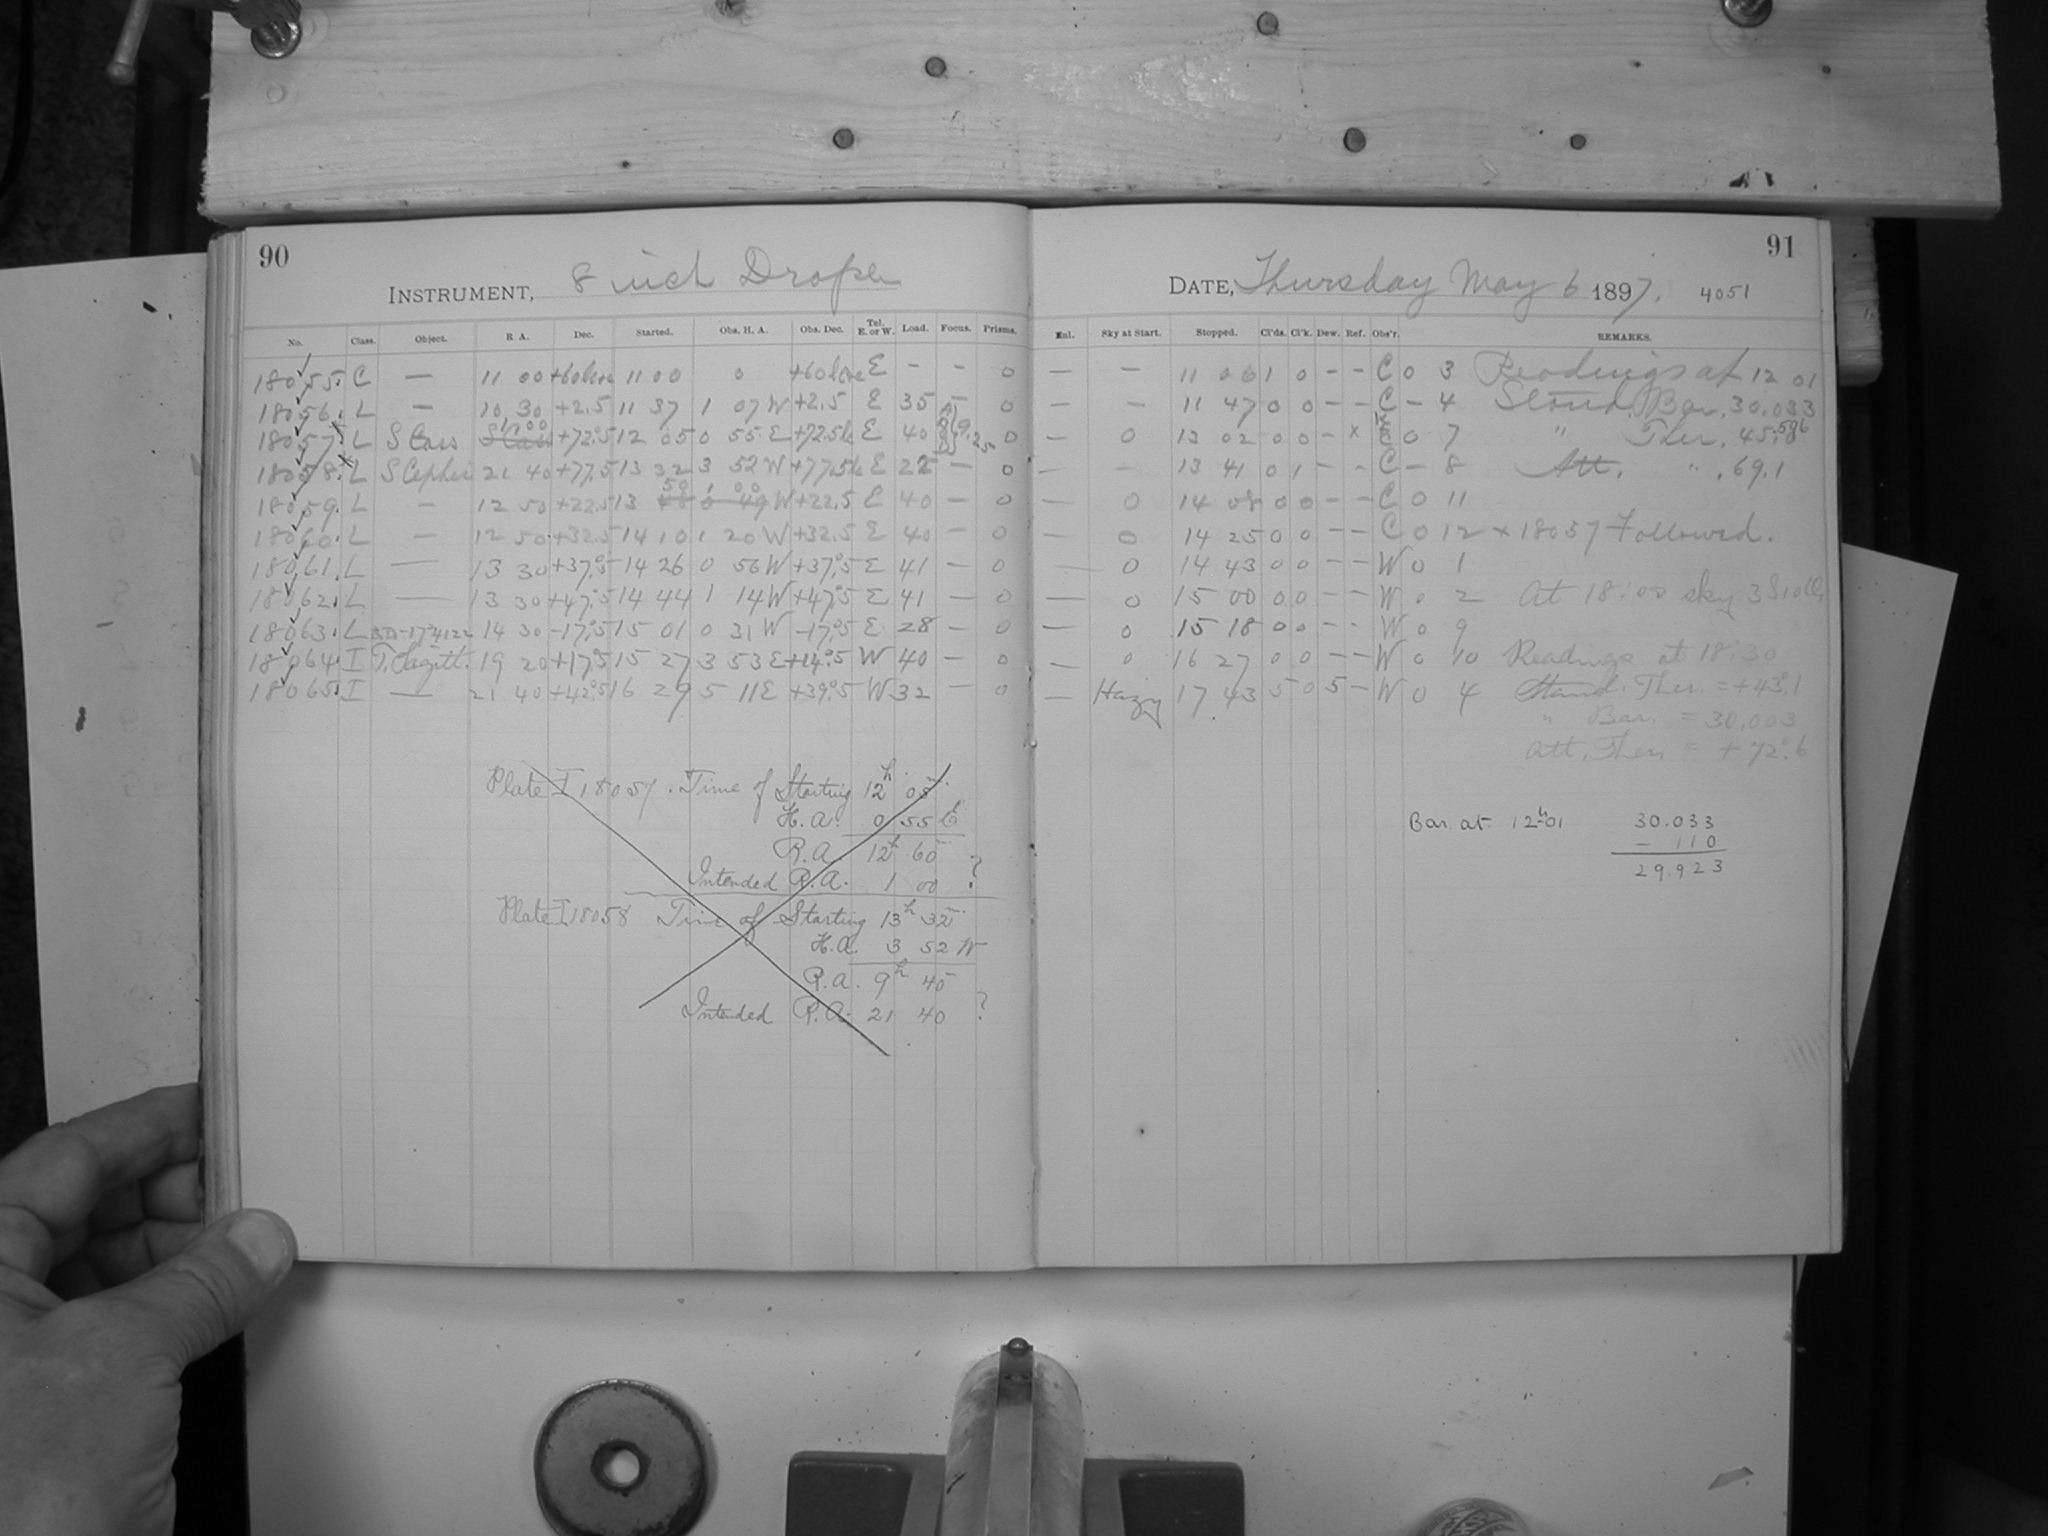 90
INSTRUMENT, 8 inch Draper
No. Class. Object. R. A. Dec. Started. Obs. H. A. Obs. Dec. Tel. E. or W. Load. Focus. Prisms.
18055. C — 11 00 +60 11 00 0 +60 E - - 0
18056. L — 10 30 +2.5 11 37 1 07 W +2.5 E 35 - 0
18057. L S Cass 1 00 +72.5 12 05 0 55 E +72.5 E 40 0
18058. L S Cephei 21 40 +77.5 13 32 3 52 W +77.5 E 22 — 0
18059. L — 12 50 +22.5 13 50 1 00 W +22.5 E 40 — 0
18060. L — 12 50 +32.5 14 10 1 20 W +32.5 E 40 — 0
18061. L — 13 30 +37.°5 14 26 0 56 W +37.°5 E 41 — 0
18062. L — 13 30 +47.°5 14 44 1 14 W +47.°5 E 41 — 0
18063. L -17°4122 14 30 -17.°5 15 01 0 31 W -17.°5 E 28 — 0
18064. I T. Sagitt. 19 20 +17.°5 15 27 3 53 E +14.°5 W 40 — 0
18065. I — 21 40 +42.°5 16 29 5 11 E +39.°5 W 32 — 0
Plate I 18057. Time of Starting 12h 05m
H.A. 0 55 E
R.A. 12h 60
Intended R.A. 1 00 ?
Plate I 18058 Time of Starting 13h 32m
H.A. 3 52 W
R.A. 9h 40
Intended R.A. 21 40 ?
91
DATE, Thursday May 6 1897. 4051
Enl. Sky at Start. Stopped. Cl'ds. Cl'k. Dew. Ref. Obs'r. REMARKS.
— — 11 06 1 0 - - C 0 3 Readings at 12 01
— — 11 47 0 0 - - C - 4 Stand. Bar. 30.033
— 0 13 02 0 0 - x 0 7 " Ther. 45.
— — 13 41 0 1 - - C - 8 Att. " . 69.1
— 0 14 08 0 0 - - C 0 11
— 0 14 25 0 0 - - C 0 12 x 18057 Followed.
— 0 14 43 0 0 - - W 0 1
— 0 15 00 0 0 - - W 0 2 At 18:00 sky
— 0 15 18 0 0 - - W 0 9
— 0 16 27 0 0 - - W 0 10 Readings at 18:30
— Hazy 17 43 5 0 5 - W 0 4 Stand. Ther. = +43.°1
" Bar. = 30.003
Att. Ther. = +72.°6
Bar. at 12h 01 30.033
- 110
29.923